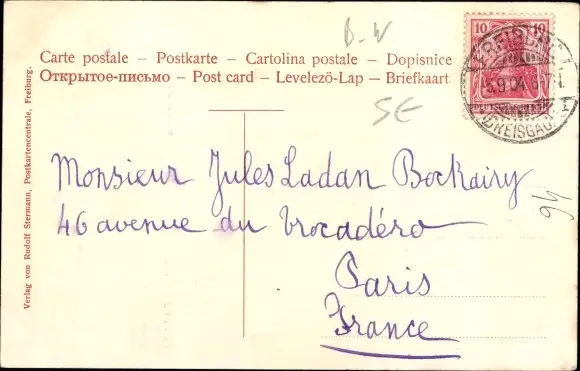 B-W
Carte postale – Postkarte – Cartolina postale – Dopisnice
Открытое-письмо – Post card – Levelezö-Lap – Briefkaart
10 10
FREIBURG
5.9.04.
(BREISGAU)
SE
Monsieur Jules Ladan Bockairy
46 avenue du Trocadéro
Paris
France
94
Verlag von Rudolf Stermann, Postkartencentrale, Freiburg.